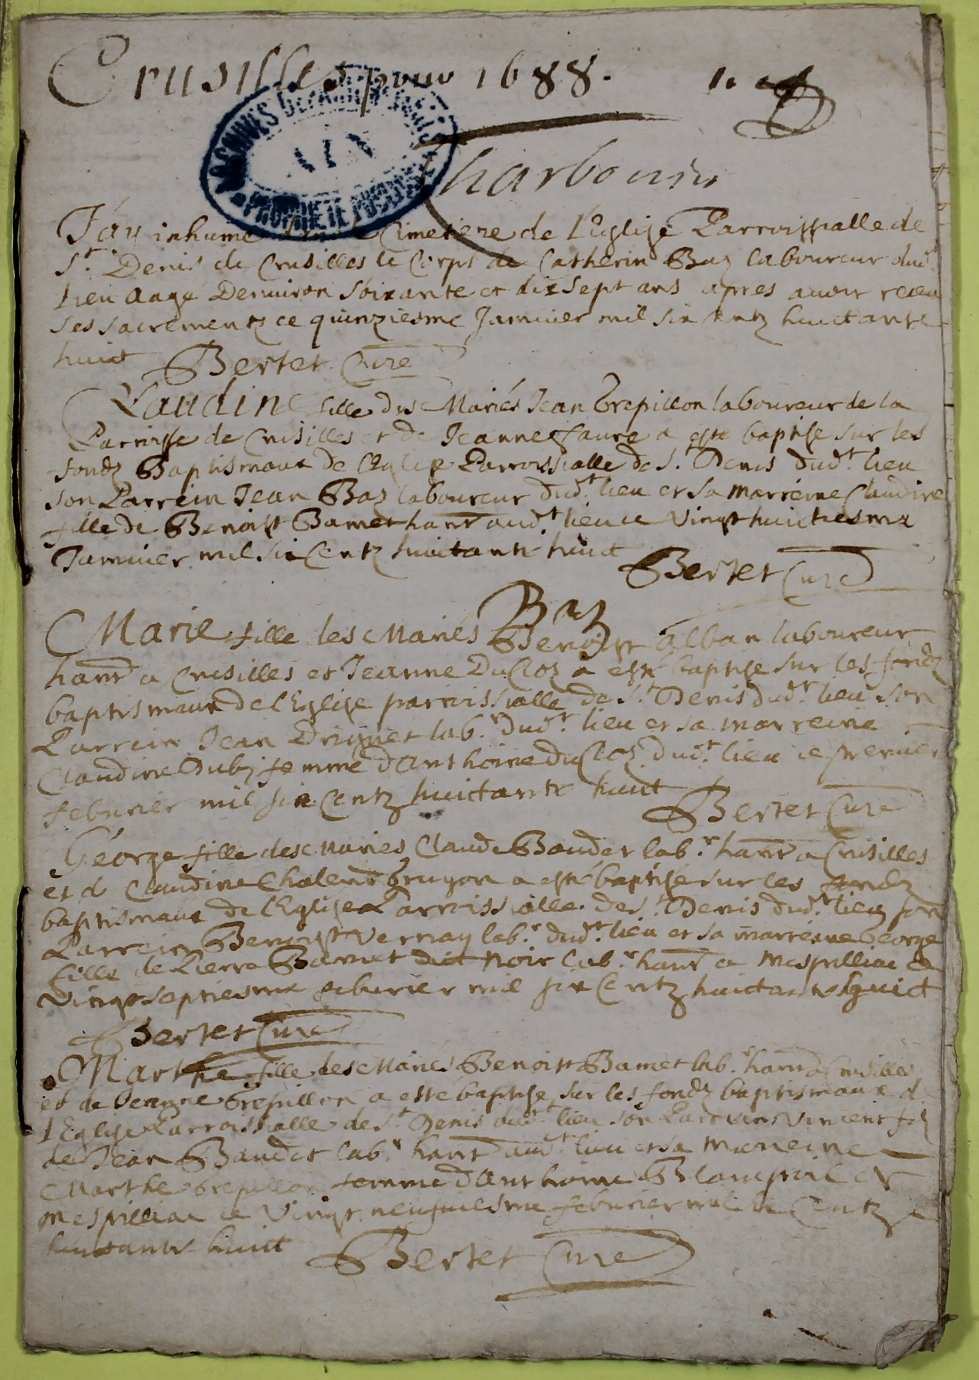 Crusilles pour 1688.
ARCHIVES DEPARTEMENTALES
PROPRIETE PUBLIQUE
Charbonin
J'ay inhumé Cimetiere de l'Eglise Parroissialle de
St Denis de Crusilles le Corps de Catherin Baz laboureur dudt
lieu aagé Denviron soixante et dix sept ans apres avoir receu
ses sacrementz ce quinziesme Janvier mil six centz huictante
huict Bertet Curé
Claudine fille des Mariés Jean Trepillon laboureur de la
Parroisse de Crusilles et de Jeanne faure a esté baptise sur les
fondz Baptismaux de l'Eglise Parroissialle de St Denis dudt lieu
son Parrein Jean Baz laboureur dudt lieu et sa marreine Claudine
fille de Benoist Bamet hant audt lieu ce Vingt huictiesme
Janvier mil six Centz huictante huict
Bertet Curé
Baz
Marie fille des Mariés Benoist Alban laboureur
hant a Crusilles et Jeanne Ducloz a esté baptise sur les fondz
baptismaux de l'Eglise parroissialle de St Denis dudt lieu son
Parrein Jean Driguet labr dudt lieu et sa marreine
Claudine Duby femme d'Anthoine Ducloz dudt lieu ce premier
febvrier mil six Centz huictante huict
Bertet Curé
George fille des Mariés Claude Baudet labr hant a Crusilles
et de Claudine Chalend bruyon a esté baptise sur les fondz
baptismaux de l'Eglise Parroissialle de St Denis dudt lieu son
Parrein Benoist Vernay labr dudt lieu et sa marreine George
fille de Pierre Bamet dict Noir labr hant a Mespilliac ce
Vingt septiesme febvrier mil six Centz huictante huict
Bertet Curé
Marthe fille des Mariés Benoist Bamet labr hant a Crusilles
et de Trepillon a esté baptise sur les fondz baptismaux de
l'Eglise Parroissialle de St Denis dudt lieu son Parrein Vincent filz
de Jean Baudet labr hant audt lieu et sa Marreine
Marthe Trepillon femme d'Anthoine
Mespilliac ce Vingt neufviesme febvrier mil six Centz
huictante huict
Bertet Curé